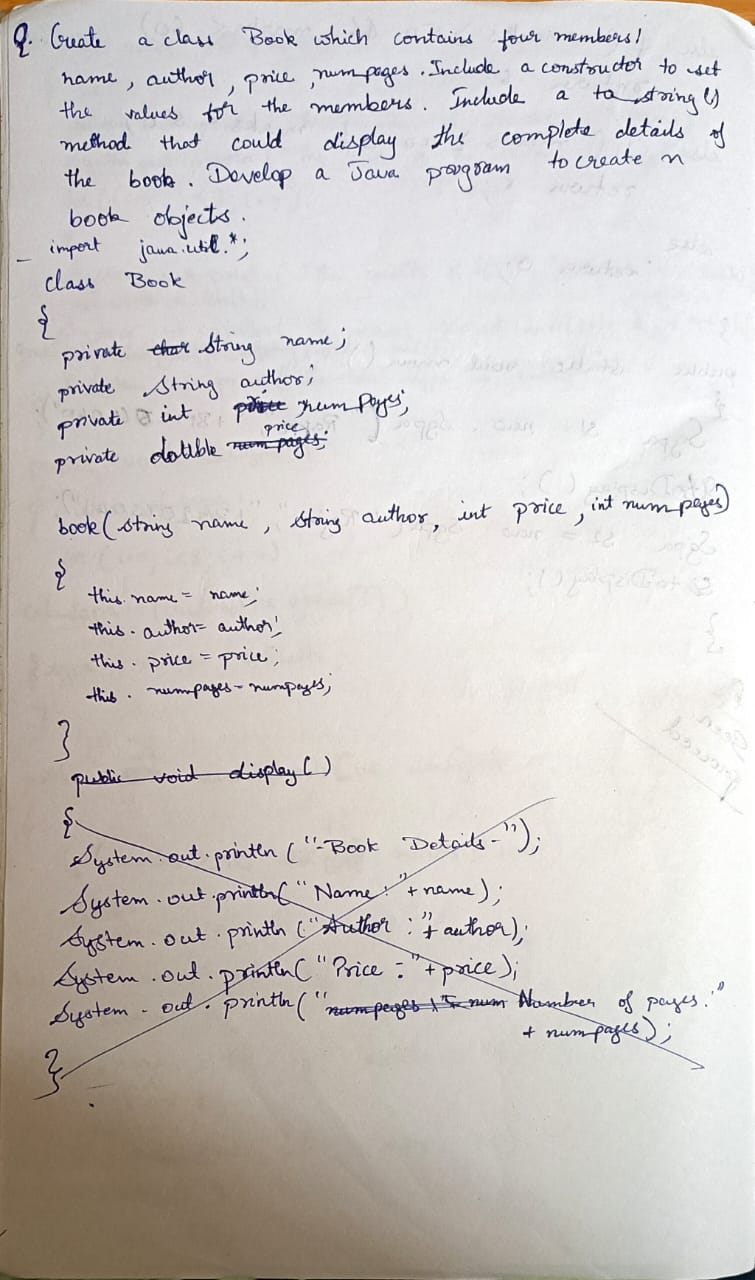 Q. Create a class Book which contains four members:
name, author, price, numpages. Include a constructor to set
the values for the members. Include a to string()
method that could display the complete details of
the book. Develop a Java program to create n
book objects.
import java.util.*;
class Book
{
private char String name;
private String author;
private int price numpages;
private double num pages; price
book(string name, string author, int price, int numpages)
{
this.name = name;
this.author = author;
this.price = price;
this.numpages = numpages;
}
public void display()
{
System.out.println("-Book Details-");
System.out.println("Name: "+name);
System.out.println("Author : "+author);
System.out.println("Price = "+price);
System.out.println("numpages num Number of pages:"
+ numpages);
}